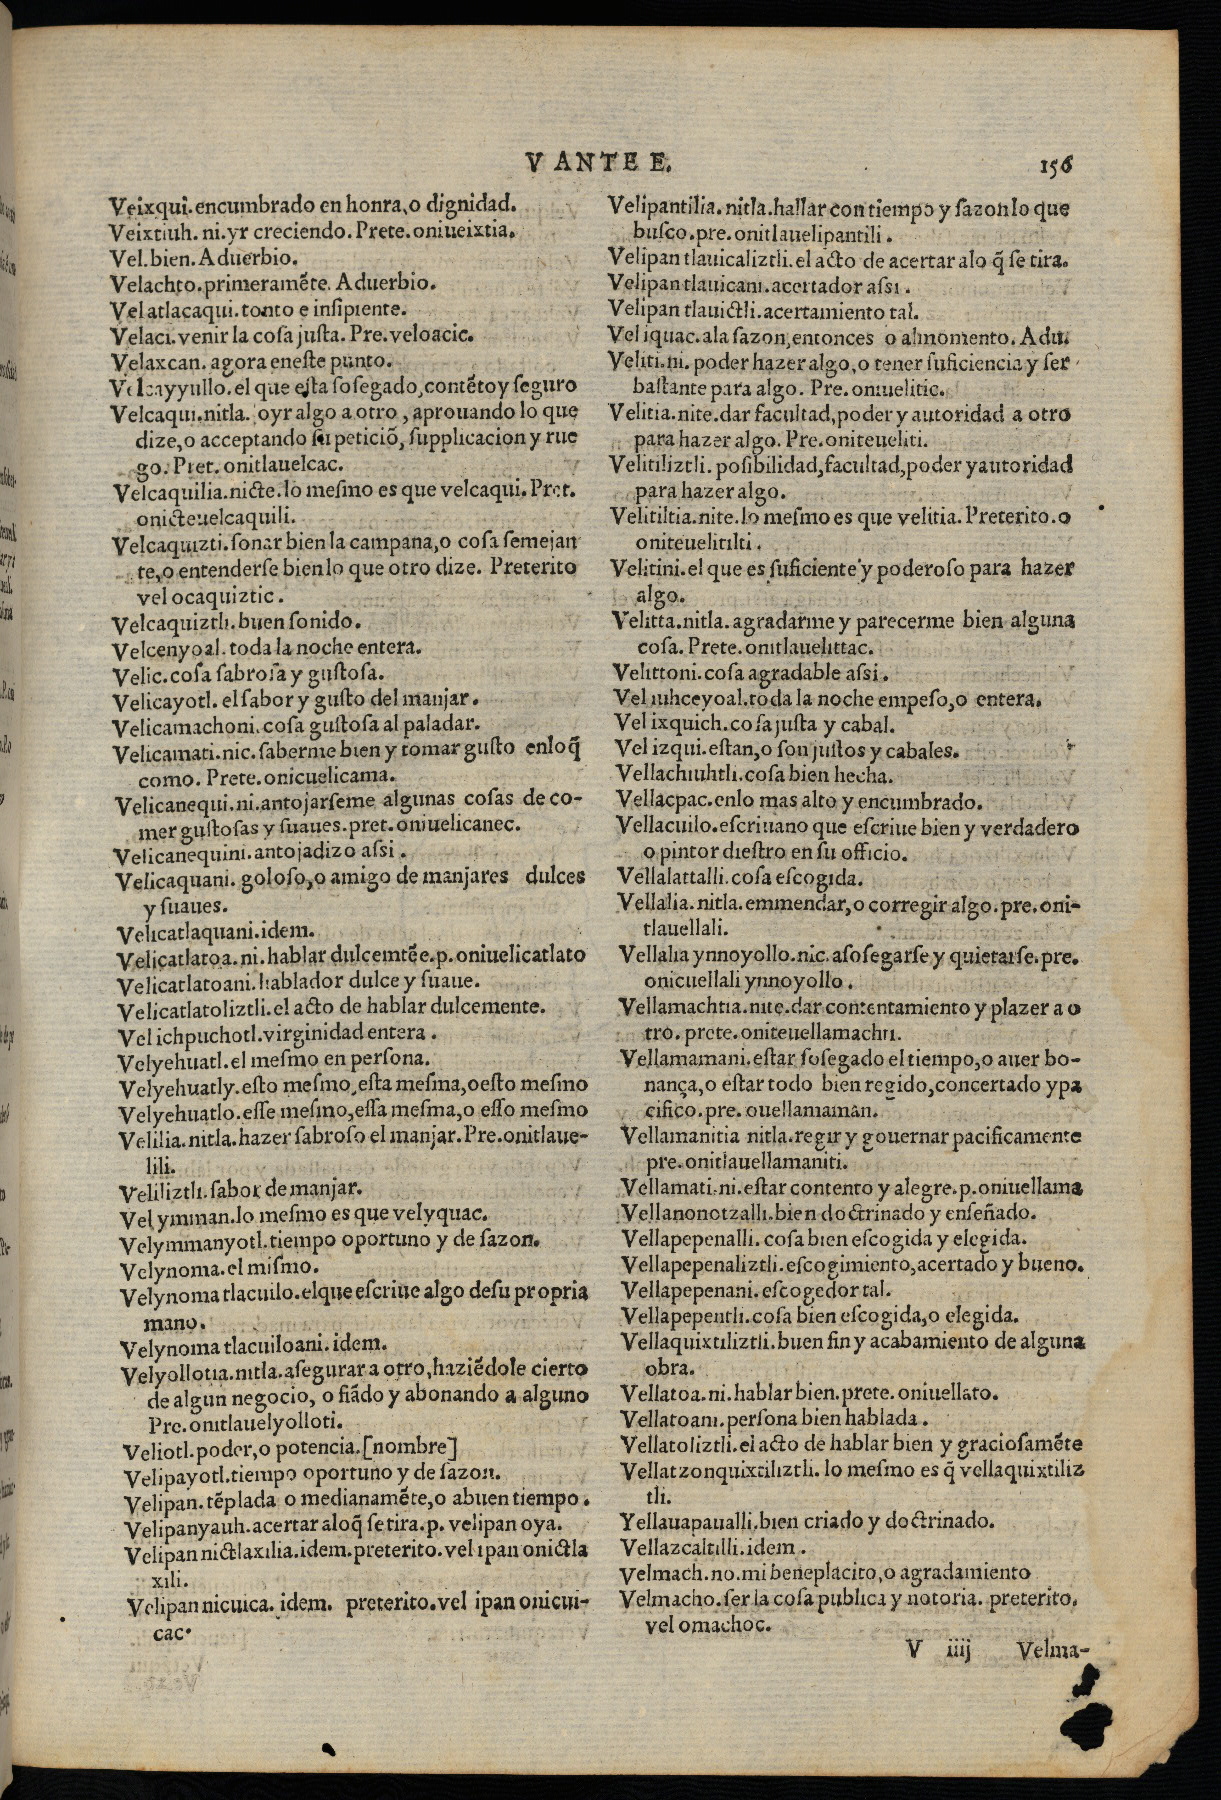 V ANTE E.
156
Veixqui.encumbrado en honra,o dignidad.
Veixtiuh.ni.yr creciendo.Prete.oniueixtia.
Vel.bien.Aduerbio.
Velachto.primeramẽte.Aduerbio.
Vel atlacaqui.tonto e insipiente.
Velaci.venir la cosa justa.Pre.veloacic.
Velaxcan.agora eneste punto.
Velcayyullo.el que esta sosegado,contẽto y seguro
Velcaqui.nitla.oyr algo a otro,aprouando lo que
dize,o acceptando su peticiõ,supplicacion y rue
go.Pret.onitlauelcac.
Velcaquilia.nicte.lo mesmo es que velcaqui.Pret.
onicteuelcaquili.
Velcaquizti.sonar bien la campana,o cosa semejan
te,o entenderse bien lo que otro dize.Preterito
vel ocaquiztic.
Velcaquiztli.buen sonido.
Velcenyoal.toda la noche entera.
Velic.cosa sabrosa y gustosa.
Velicayotl.el sabor y gusto del manjar.
Velicamachoni.cosa gustosa al paladar.
Velicamati.nic.saberme bien y tomar gusto enloq̃
como.Prete.onicuelicama.
Velicanequi.ni.antojarseme algunas cosas de co-
mer gustosas y suaues.pret.oniuelicanec.
Velicanequini.antojadizo assi.
Velicaquani.goloso,o amigo de manjares dulces
y suaues.
Velicatlaquani.idem.
Velicatlatoa.ni.hablar dulcemtẽe.p.oniuelicatlato
Velicatlatoani.hablador dulce y suaue.
Velicatlatoliztli.el acto de hablar dulcemente.
Vel ichpuchotl.virginidad entera.
Velyehuatl.el mesmo en persona.
Velyehuatly.esto mesmo,esta mesma,oesto mesmo
Velyehuatlo.esse mesmo,essa mesma,o esso mesmo
Velilia.nitla.hazer sabroso el manjar.Pre.onitlaue-
lili.
Veliliztli.sabor de manjar.
Vel ymman.lo mesmo es que velyquac.
Velymmanyotl.tiempo oportuno y de sazon.
Velynoma.el mismo.
Velynoma tlacuilo.elque escriue algo desu propria
mano.
Velynoma tlacuiloani.idem.
Velyollotia.nitla.asegurar a otro,haziẽdole cierto
de algun negocio,o fiãdo y abonando a alguno
Pre.onitlauelyolloti.
Veliotl.poder,o potencia.[nombre]
Velipayotl.tiempo oportuno y de sazon.
Velipan.tẽplada o medianamẽte,o abuen tiempo.
Velipanyauh.acertar aloq̃ se tira.p.velipan oya.
Velipan nictlaxilia.idem.preterito.vel ipan onictla
xili.
Velipan nicuica.idem. preterito.vel ipan onicui-
cac.
Velipantilia.nitla.hallar con tiempo y sazon lo que
busco.pre.onitlauelipantili.
Velipan tlauicaliztli.el acto de acertar alo q̃ se tira.
Velipan tlauicani.acertador assi.
Velipan tlauictli.acertamiento tal.
Vel iquac.ala sazon,entonces o al momento.Adu.
Veliti.ni.poder hazer algo,o tener suficiencia y ser
bastante para algo.Pre.oniuelitic.
Velitia.nite.dar facultad,poder y autoridad a otro
para hazer algo.Pre.oniteueliti.
Velitiliztli.posibilidad,facultad,poder yautoridad
para hazer algo.
Velitiltia.nite.lo mesmo es que velitia.Preterito.o
oniteuelitilti.
Velitini.el que es suficiente y poderoso para hazer
algo.
Velitta.nitla.agradarme y parecerme bien alguna
cosa.Prete.onitlauelittac.
Velittoni.cosa agradable assi.
Vel iuhceyoal.toda la noche empeso,o entera.
Vel ixquich.cosa justa y cabal.
Vel izqui.estan,o son justos y cabales.
Vellachiuhtli.cosa bien hecha.
Vellacpac.enlo mas alto y encumbrado.
Vellacuilo.escriuano que escriue bien y verdadero
o pintor diestro en su officio.
Vellalattalli.cosa escogida.
Vellalia.nitla.emmendar,o corregir algo.pre.oni-
tlauellali.
Vellalia ynnoyollo.nic.asosegarse y quietarse.pre.
onicuellali ynnoyollo.
Vellamachtia.nite.dar contentamiento y plazer a o
tro.prete.oniteuellamachti.
Vellamamani.estar sosegado el tiempo,o auer bo-
nança,o estar todo bien regido,concertado ypa
cifico.pre.ouellamaman.
Vellamanitia nitla.regir y gouernar pacificamente
pre.onitlauellamaniti.
Vellamati.ni.estar contento y alegre.p.oniuellama
Vellanonotzalli.bien doctrinado y enseñado.
Vellapepenalli.cosa bien escogida y elegida.
Vellapepenaliztli.escogimiento,acertado y bueno.
Vellapepenani.escogedor tal.
Vellapepentli.cosa bien escogida,o elegida.
Vellaquixtiliztli.buen fin y acabamiento de alguna
obra.
Vellatoa.ni.hablar bien.prete.oniuellato.
Vellatoani.persona bien hablada.
Vellatoliztli.el acto de hablar bien y graciosamẽte
Vellatzonquixtiliztli.lo mesmo es q̃ vellaquixtiliz
tli.
Vellauapaualli.bien criado y doctrinado.
Vellazcaltilli.idem.
Velmach.no.mi beneplacito,o agradamiento
Velmacho.ser la cosa publica y notoria.preterito.
vel omachoc.
V iiij Velma-